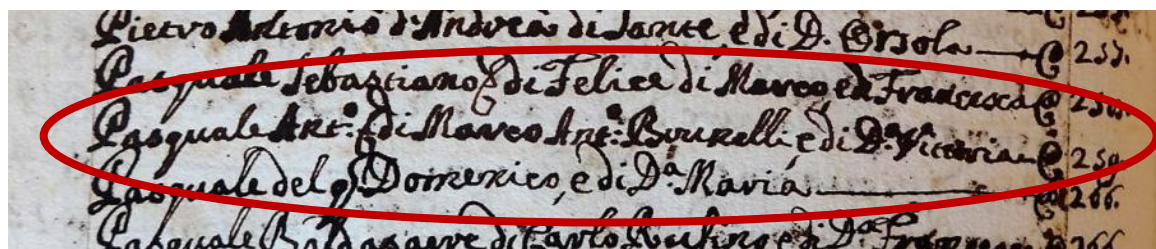 Pietro Antonio d'Andrea di Sante, e di D. Orsola — C 257.
Pasquale Sebastiano di Felice di Marco, ed Francesca C 258.
Pasquale Ant.o di Marco Ant.o Brunelli, e di D.a Vittoria C 259
Pasquale del q. Domenico, e di D.a Maria — C 266.
Pasquale Baldassarre di Carlo Rufino e di D.a 266